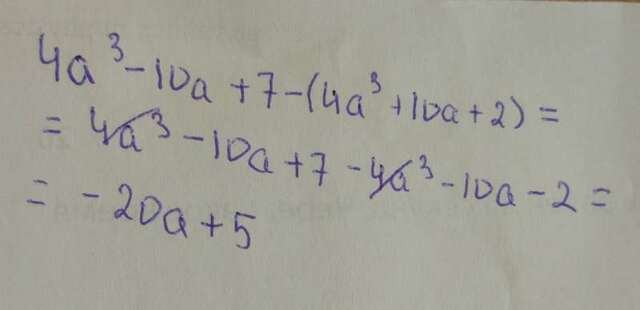 4a³-10a+7-(4a³+10a+2)=
=4a³-10a+7-4a³-10a-2=
=-20a+5